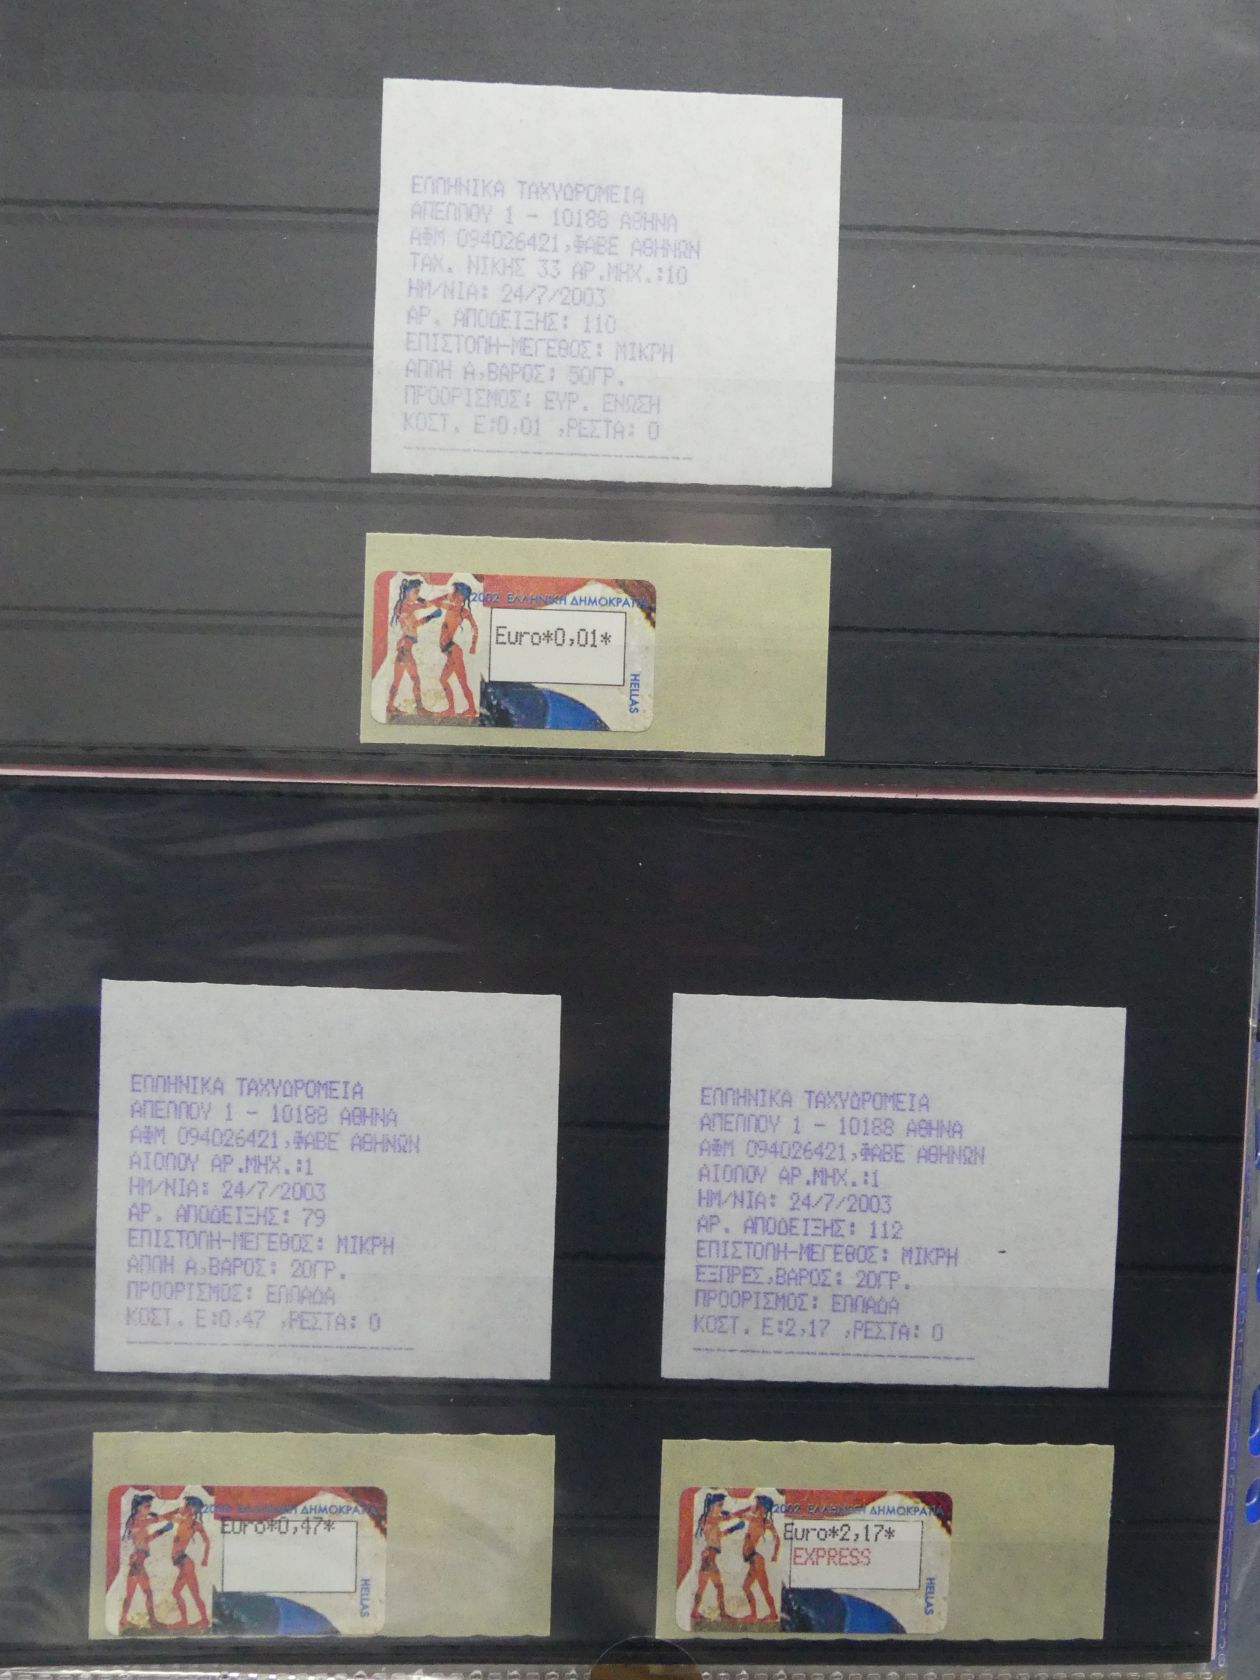 ΕΛΛΗΝΙΚΑ ΤΑΧΥΔΡΟΜΕΙΑ
ΑΠΕΛΛΟΥ 1 - 10188 ΑΘΗΝΑ
ΑΦΜ 094026421,ΦΑΒΕ ΑΘΗΝΩΝ
ΤΑΧ. ΝΙΚΗΣ 33 ΑΡ.ΜΗΧ.:10
ΗΜ/ΝΙΑ: 24/7/2003
ΑΡ. ΑΠΟΔΕΙΞΗΣ: 110
ΕΠΙΣΤΟΛΗ-ΜΕΓΕΘΟΣ: ΜΙΚΡΗ
ΑΠΛΗ Α,ΒΑΡΟΣ: 50ΓΡ.
ΠΡΟΟΡΙΣΜΟΣ: ΕΥΡ. ΕΝΩΣΗ
ΚΟΣΤ. Ε:0,01 ,ΡΕΣΤΑ: 0
2002 ΕΛΛΗΝΙΚΗ ΔΗΜΟΚΡΑΤΙΑ
Euro*0,01*
HELLAS
ΕΛΛΗΝΙΚΑ ΤΑΧΥΔΡΟΜΕΙΑ
ΑΠΕΛΛΟΥ 1 - 10188 ΑΘΗΝΑ
ΑΦΜ 094026421,ΦΑΒΕ ΑΘΗΝΩΝ
ΑΙΟΛΟΥ ΑΡ.ΜΗΧ.:1
ΗΜ/ΝΙΑ: 24/7/2003
ΑΡ. ΑΠΟΔΕΙΞΗΣ: 79
ΕΠΙΣΤΟΛΗ-ΜΕΓΕΘΟΣ: ΜΙΚΡΗ
ΑΠΛΗ Α,ΒΑΡΟΣ: 20ΓΡ.
ΠΡΟΟΡΙΣΜΟΣ: ΕΛΛΑΔΑ
ΚΟΣΤ. Ε:0,47 ,ΡΕΣΤΑ: 0
2002 ΕΛΛΗΝΙΚΗ ΔΗΜΟΚΡΑΤΙΑ
Euro*0,47*
HELLAS
ΕΛΛΗΝΙΚΑ ΤΑΧΥΔΡΟΜΕΙΑ
ΑΠΕΛΛΟΥ 1 - 10188 ΑΘΗΝΑ
ΑΦΜ 094026421,ΦΑΒΕ ΑΘΗΝΩΝ
ΑΙΟΛΟΥ ΑΡ.ΜΗΧ.:1
ΗΜ/ΝΙΑ: 24/7/2003
ΑΡ. ΑΠΟΔΕΙΞΗΣ: 112
ΕΠΙΣΤΟΛΗ-ΜΕΓΕΘΟΣ: ΜΙΚΡΗ
ΕΞΠΡΕΣ,ΒΑΡΟΣ: 20ΓΡ.
ΠΡΟΟΡΙΣΜΟΣ: ΕΛΛΑΔΑ
ΚΟΣΤ. Ε:2,17 ,ΡΕΣΤΑ: 0
2002 ΕΛΛΗΝΙΚΗ ΔΗΜΟΚΡΑΤΙΑ
Euro*2,17*
EXPRESS
HELLAS